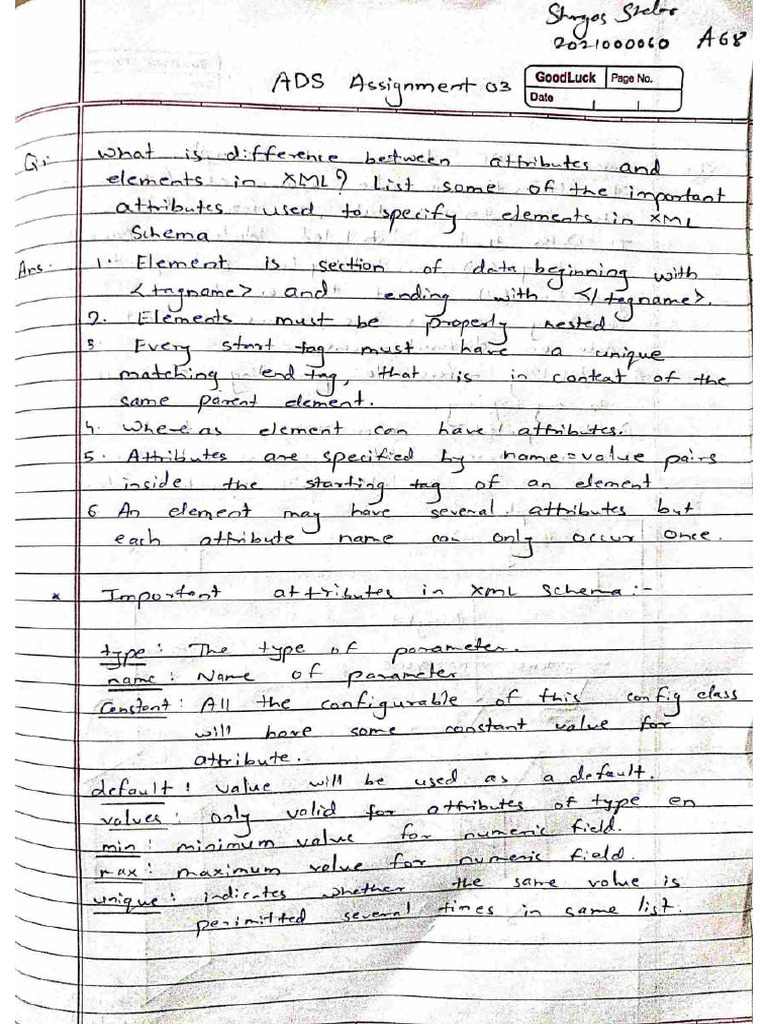 2021000060 A68
ADS Assignment 03
GoodLuck Page No.
Date
Q1. What is difference between attributes and
elements in XML? List some of the important
attributes used to specify elements in XML
Schema
Ans. 1. Element is section of data beginning with
<tagname> and ending with </tagname>.
2. Elements must be properly nested
3 Every start tag must have a unique
matching end tag, that is in context of the
same parent element.
4. Where as element can have attributes.
5. Attributes are specified by name=value pairs
inside the starting tag of an element.
6 An element may have several attributes but
each attribute name can only occur once.
* Important attributes in XML Schema :-
type : The type of parameter.
name : Name of parameter
Constant : All the configurable of this config class
will have some constant value for
attribute.
default : value will be used as a default.
values : only valid for attributes of type en
min : minimum value for numeric field.
max : maximum value for numeric field.
unique : indicates whether the same value is
perimitted several times in same list.